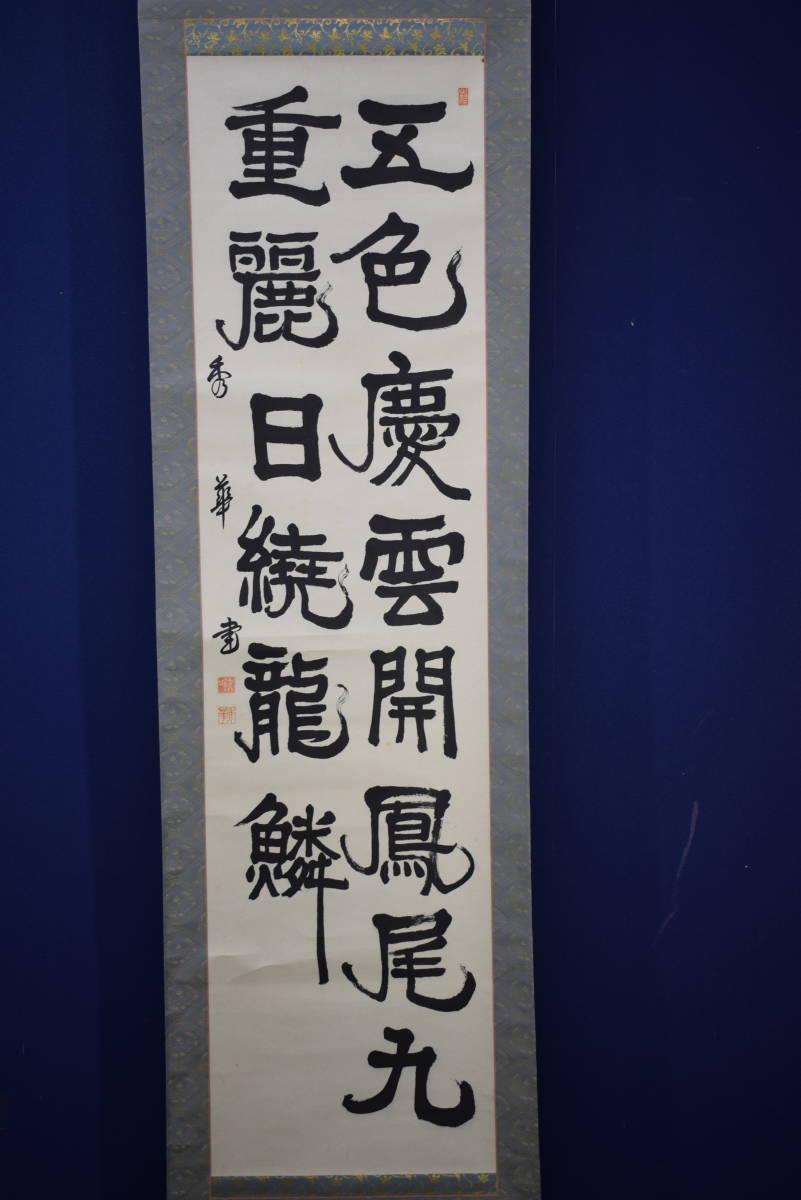 五色慶雲開鳳尾九
重麗日繞龍鱗
秀華書